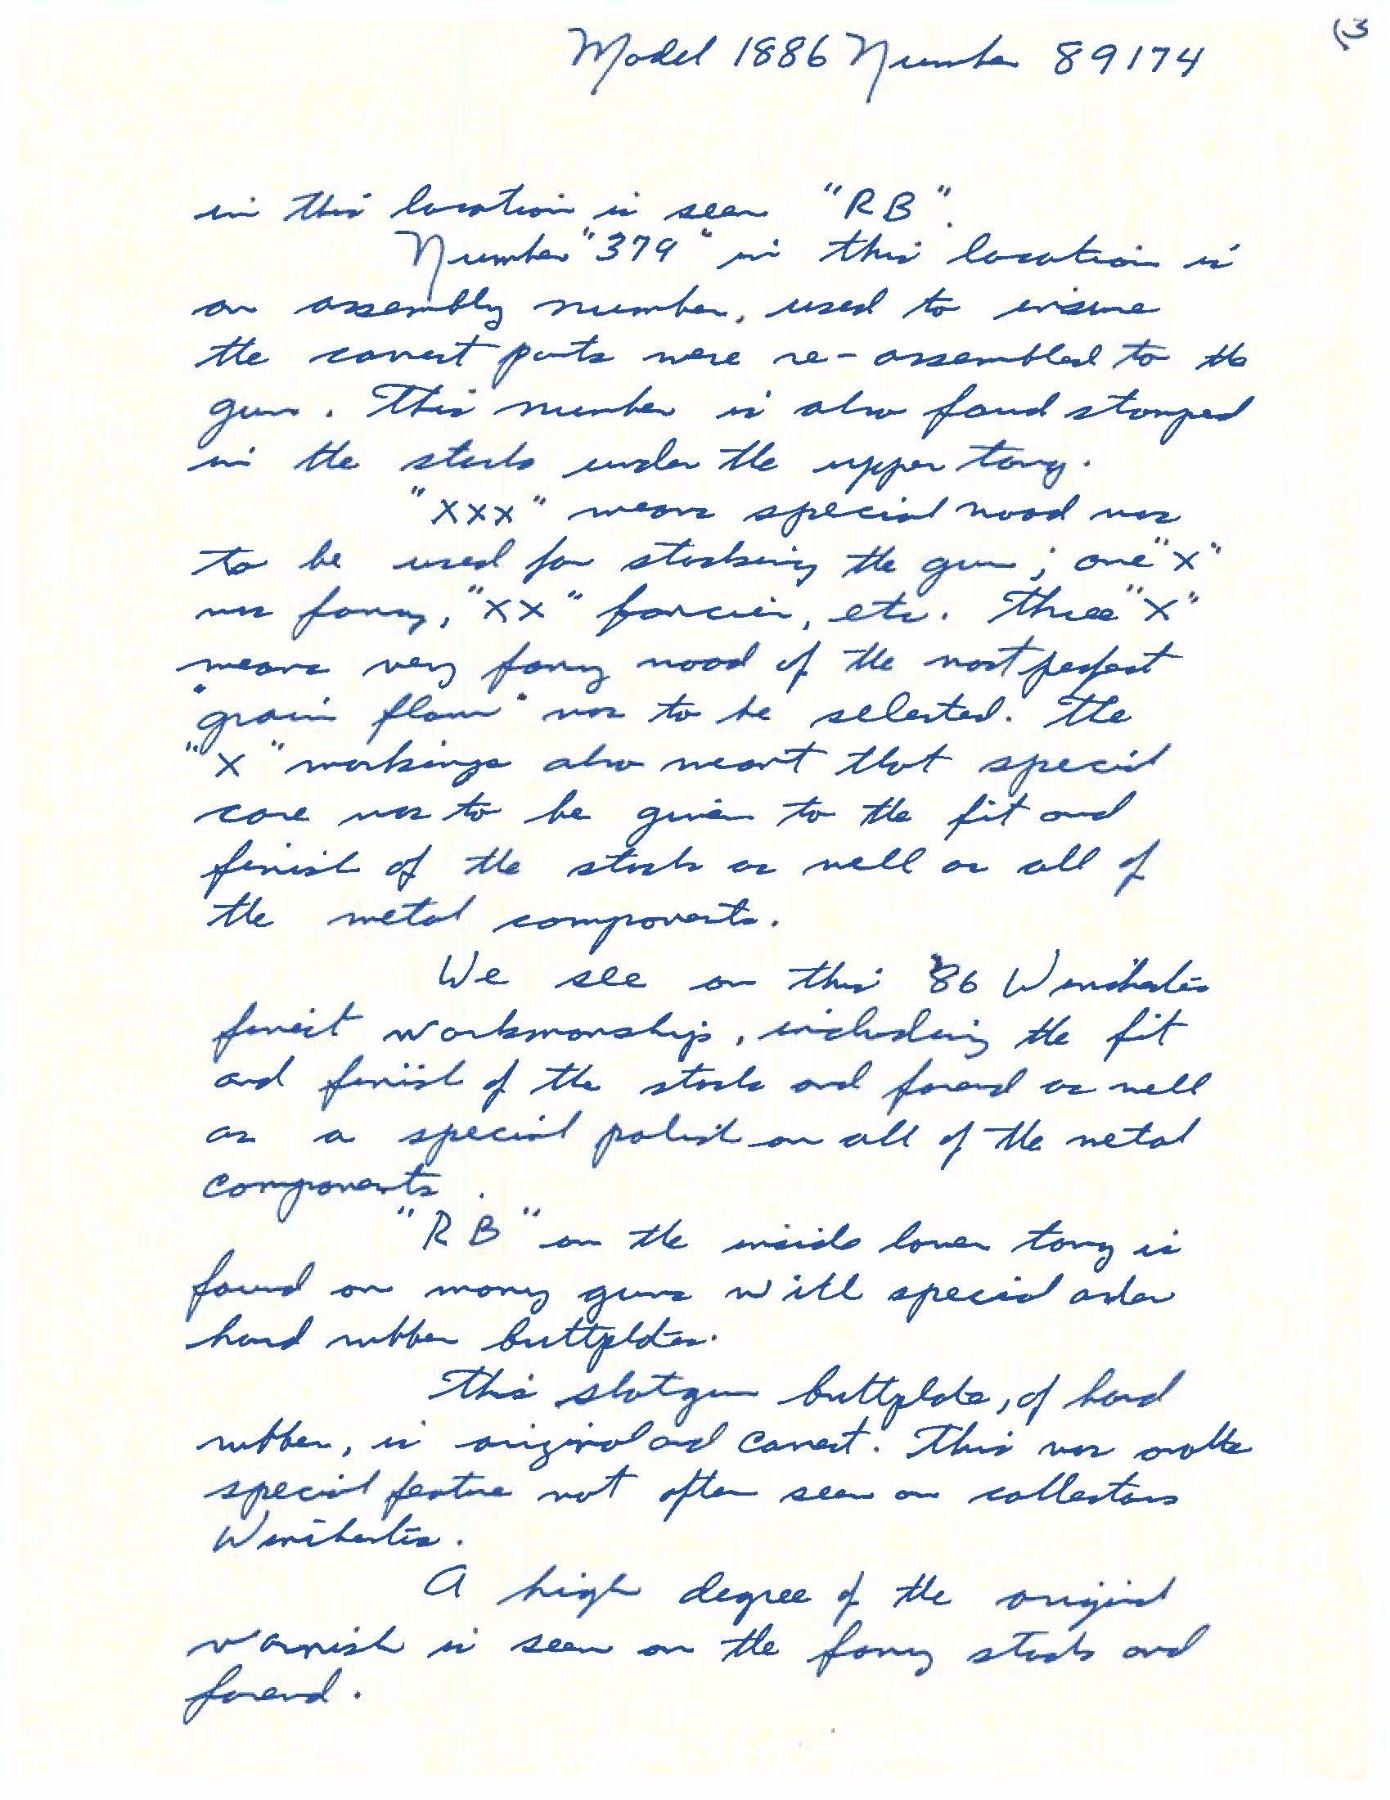 (3
Model 1886 Number 89174
in this location is seen "RB".
Number "379" in this location is
an assembly number, used to insure
the correct parts were re-assembled to the
gun. This number is also found stamped
in the stock under the upper tang.
"XXX" means special wood was
to be used for stocking the gun; one "X"
was fancy, "XX" fancier, etc. Three "X"
means very fancy wood of the most perfect
"grain flow" was to be selected. The
"X" markings also meant that special
care was to be given to the fit and
finish of the stock as well as all of
the metal components.
We see on this '86 Winchesters
finest workmanship, including the fit
and finish of the stock and forend as well
as a special polish on all of the metal
components.
"RB" on the inside lower tang is
found on many guns with special order
hard rubber buttplates.
This shotgun buttplate, of hard
rubber, is original and correct. This was another
special feature not often seen on collectors
Winchesters.
A high degree of the original
varnish is seen on the fancy stock and
forend.